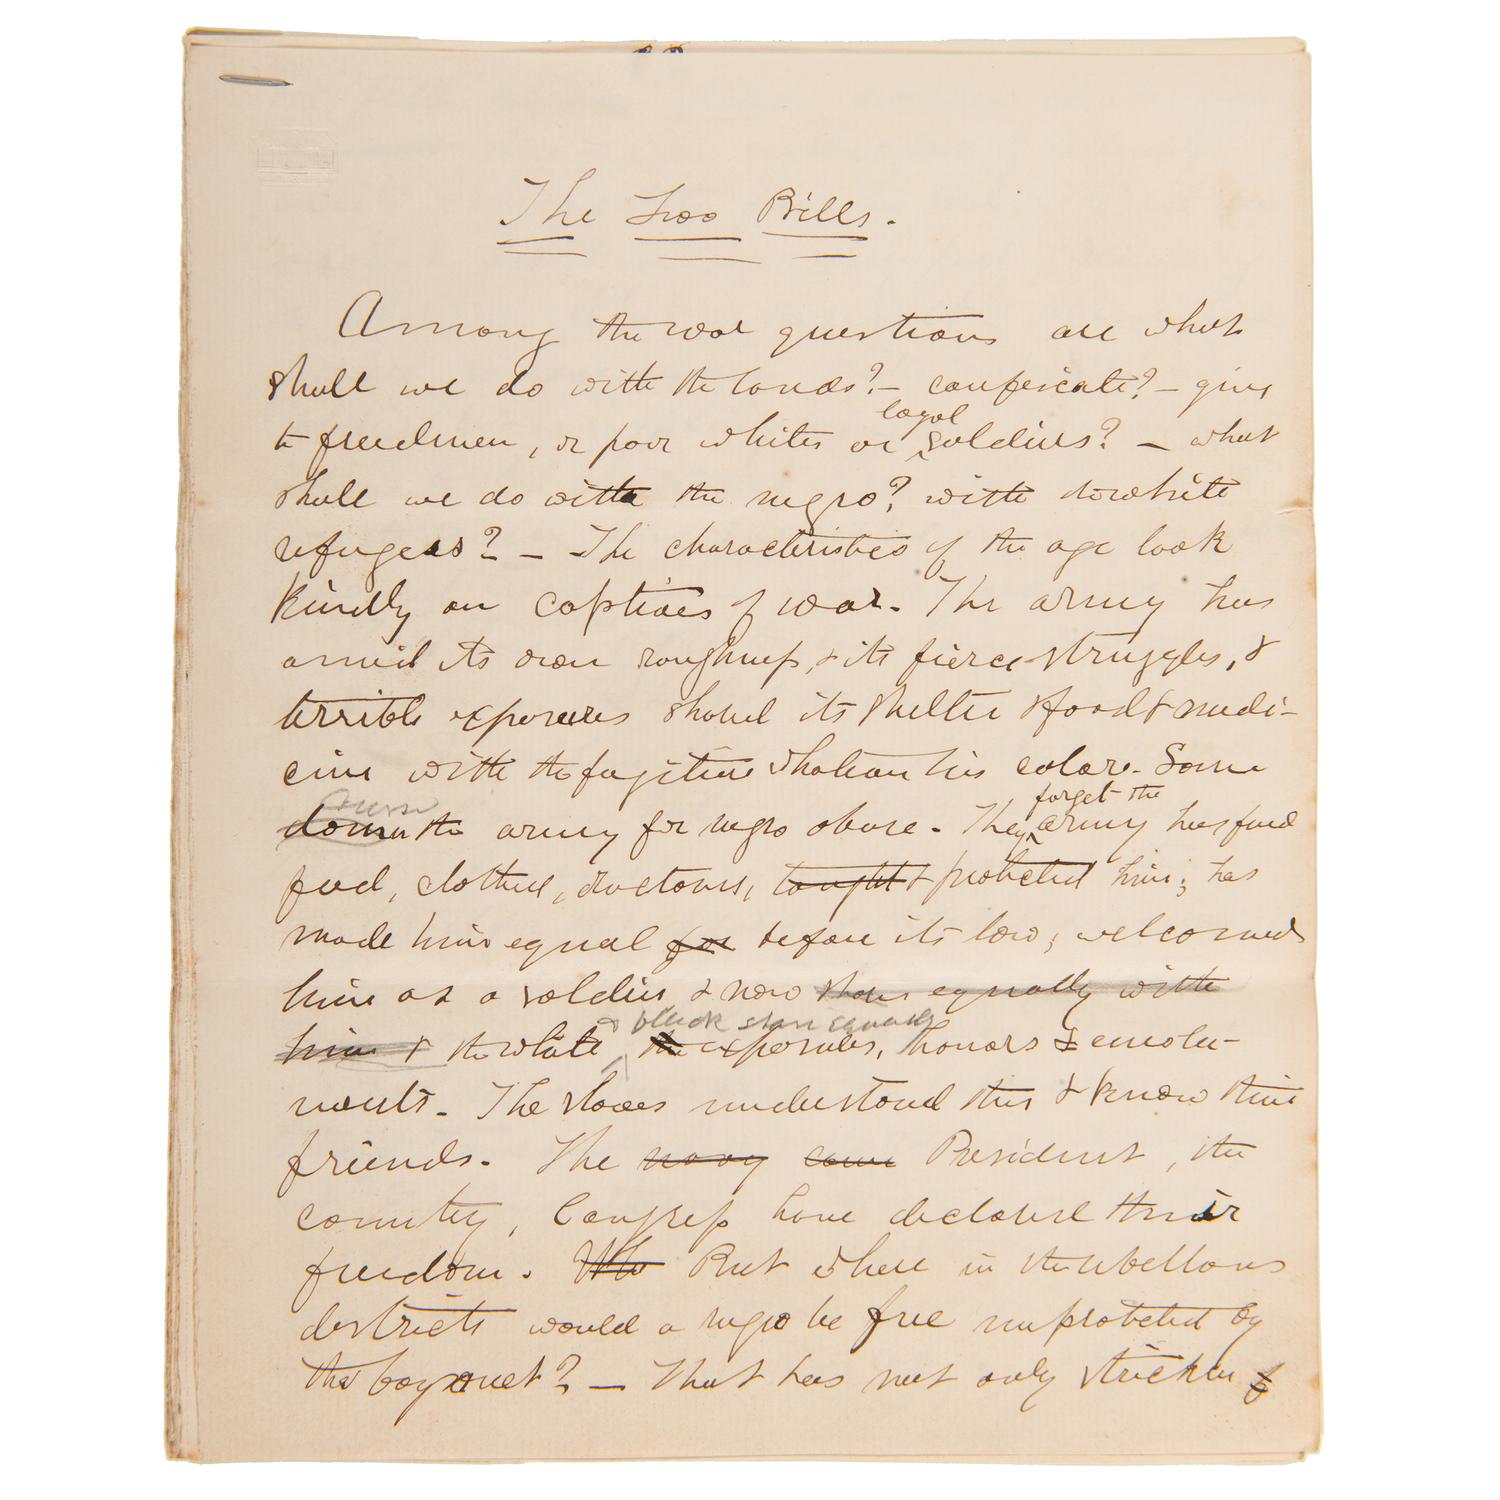 The Two Bills.
Among the war questions are what
shall we do with the lands? – confiscate? – give
loyal
to freedmen, or poor whites or soldiers? – what
shall we do with the negro? with the white
refugees? – The characteristics of the age look
kindly on captives of war. The army has
amid its own roughness, & its fierce struggles, &
terrible exposures shared its shelter & food & medi-
cine with the fugitive whatever his color. Some
curse
forget the
the army for negro abuse. They army has
fed, clothed, doctored, taught & protected him; has
made him equal for before its law; welcomed
him as a soldier & now share equally with
& black share equally
him & the white the exposures, honors & emolu-
ments. The slaves understand this & know their
friends. The navy came President, the
country, Congress have declared their
freedom. Who But where in the rebellious
districts would a negro be free unprotected by
the bayonet? – That has not only stricken